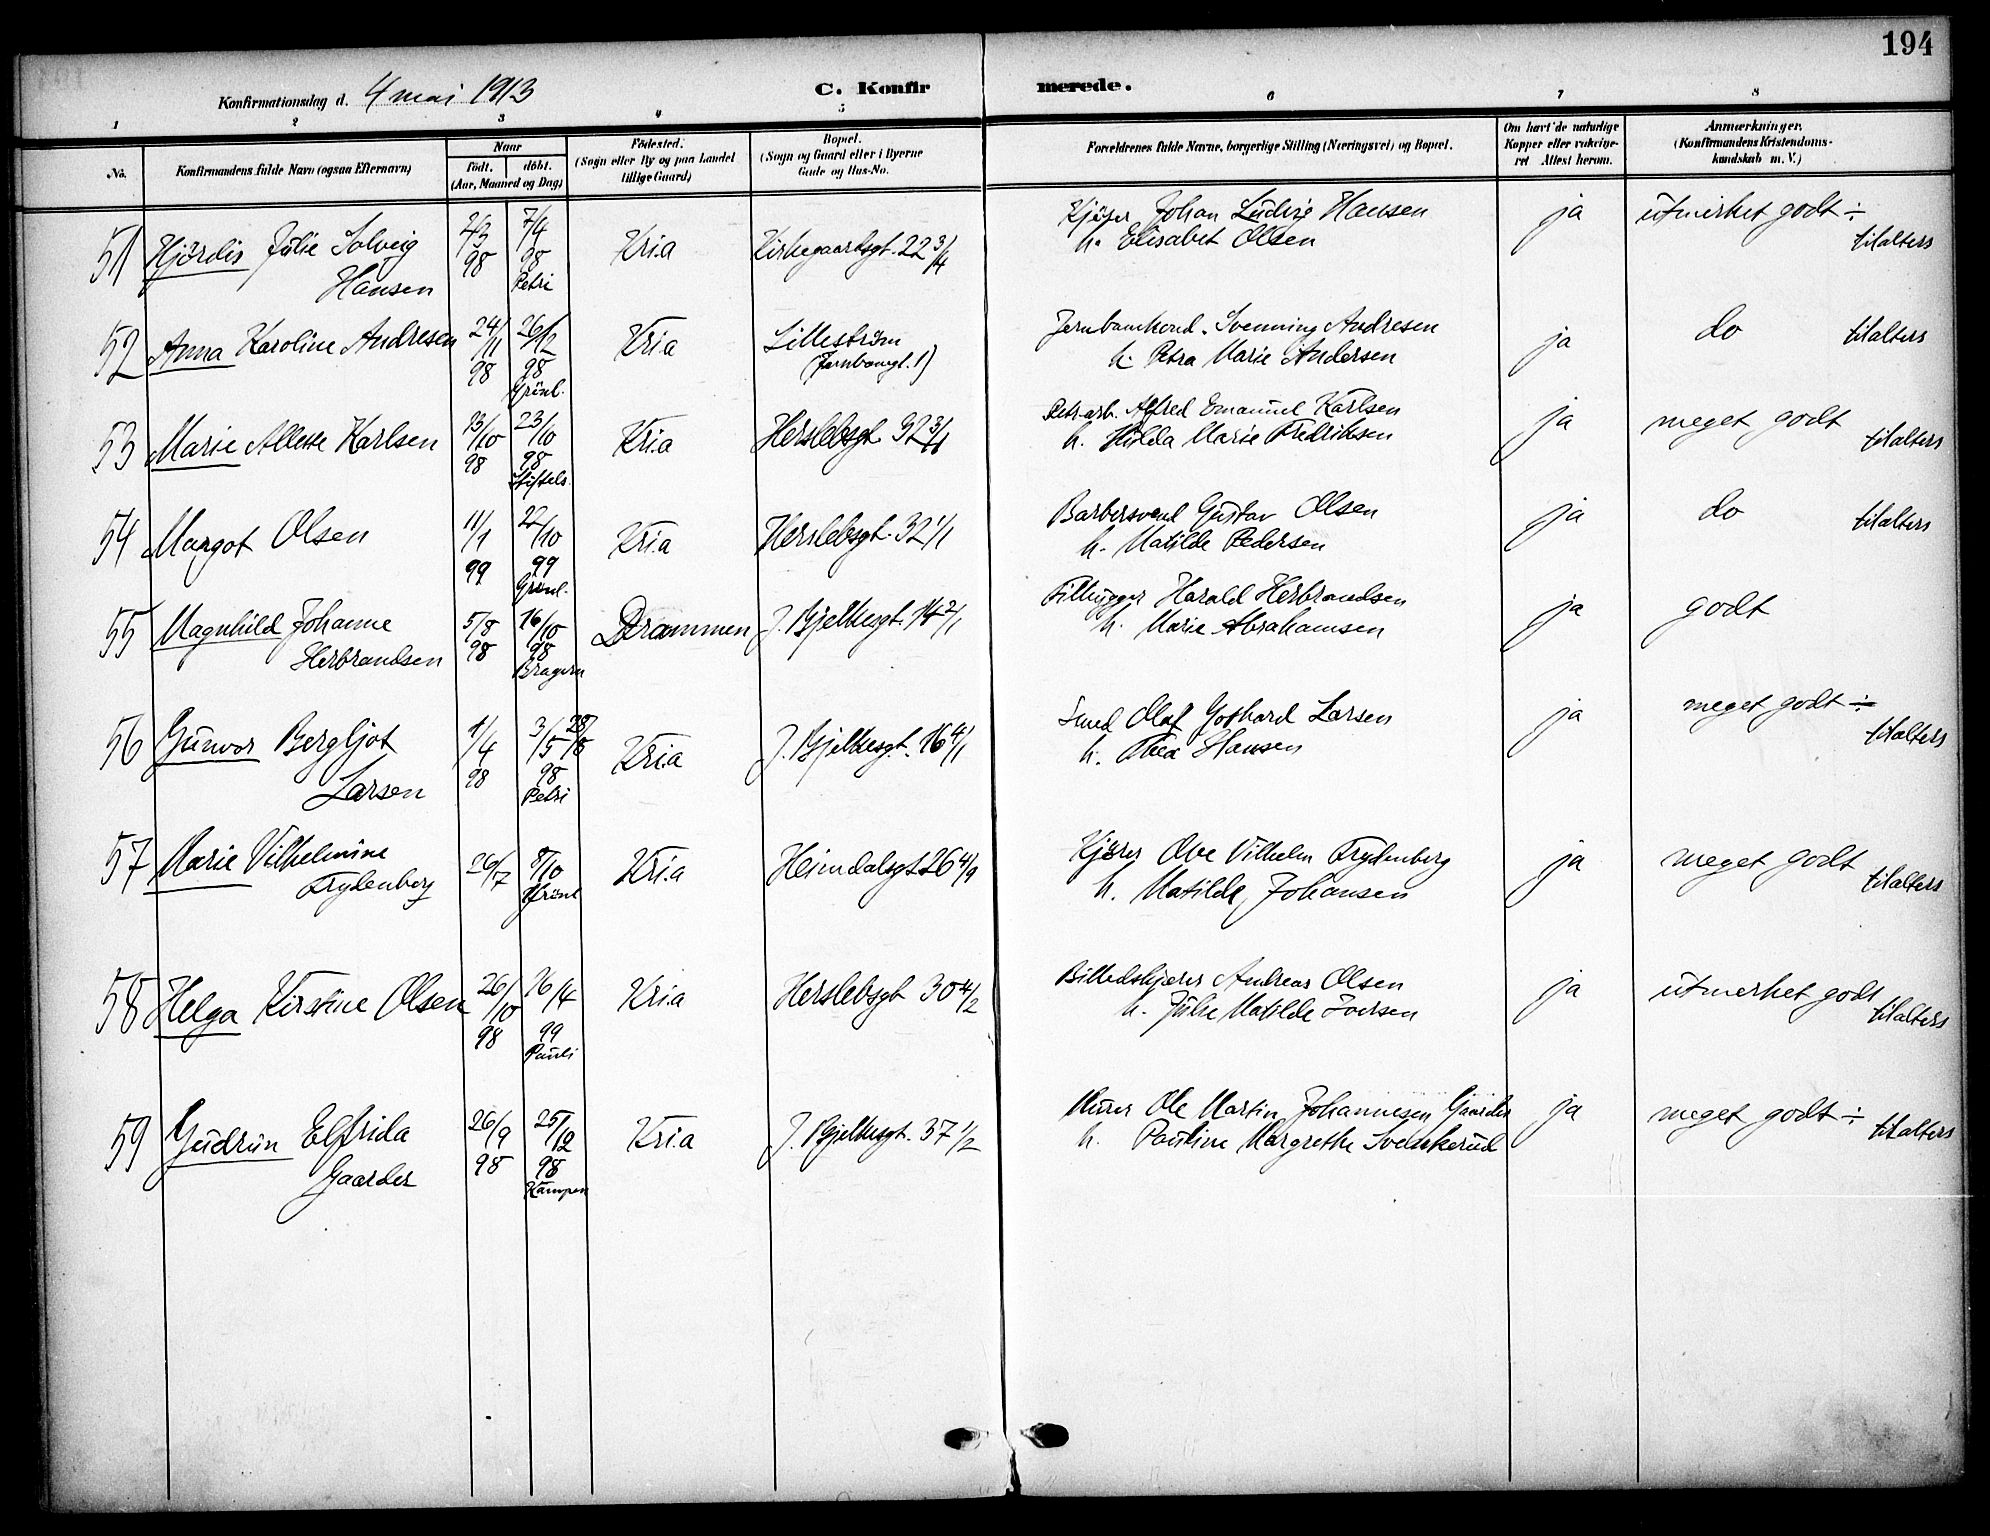 194
Konfirmationsdag d. 4 mai 1913 C. Konfirmerede.
1 2 3 4 5 6 7 8
No. Konfirmandens fulde Navn (ogsaa Efternavn) Naar født. døbt. (Aar, Maaned og Dag) Fødested. (Sogn eller By og paa Landet tillige Gaard) Bopæl. (Sogn og Gaard eller i Byerne Gade og Hus-No. Forældrenes fulde Navne, borgerlige Stilling (Næringsvei) og Bopæl. Om havt de naturlige Kopper eller vaccineret Attest herom. Anmærkninger. (Konfirmandens Kristendomskundskab m. V.)
51 Hjördis Julie Solveig Hansen 2/3 98 7/4 98 Petri Kria Kirkegaardsgt. 22 3/4 Kjører Johan Ludvig Hansen
h. Elisabet Olsen ja utmerket godt ÷ til alters
52 Anna Karoline Andresen 24/11 98 26/12 98 Grønl. Kria Lilleström (Jernbangt. 1) Jernbanekond. Svenning Andresen
h. Petra Marie Andersen ja do til alters
53 Marie Allette Karlsen 13/10 98 23/10 98 Kria Herslebsgt. 32 3/1 Alfred Emanuel Karlsen
h. Hilda Marie Fredriksen ja meget godt til alters
54 Margot Olsen 11/1 99 22/10 99 Grønl. Kria Herslebsgt. 32 1/1 Barbersvend Gustav Olsen
h. Matilde Pedersen ja do til alters
55 Magnhild Johanne Herbrandsen 5/8 98 16/10 98 Bragern Drammen J. Bjelkesgt. 14 2/1 Filhugger Harald Herbrandsen
h. Marie Abrahamsen ja godt
56 Gunvor Bergljot Larsen 1/4 98 3/5 98 Petri Kria J. Bjelkesgt. 16 4/1 Smed Olaf Gothard Larsen
h. Thea Hansen ja meget godt ÷ til alters
57 Marie Vilhelmine Frydenberg 26/7 8/10 Grønl Kria Heimdalsgt 26 4/9 Kjører Ove Vilhelm Frydenberg
h. Matilde Johansen ja meget godt til alters
58 Helga Kirstine Olsen 26/10 98 16/4 99 Pauli Kria Herslebsgt 30 4/2 Billedskjærer Andreas Olsen
h. Julie Matilde Iversen ja utmerket godt til alters
59 Gudrun Elfrida Gaarder 26/9 98 25/12 98 Kampen Kria J. Bjelkesgt. 37 1/2 Murer Ole Martin Johannesen Gaarder
h. Pauline Margrethe Svenkerud ja meget godt ÷ til alters